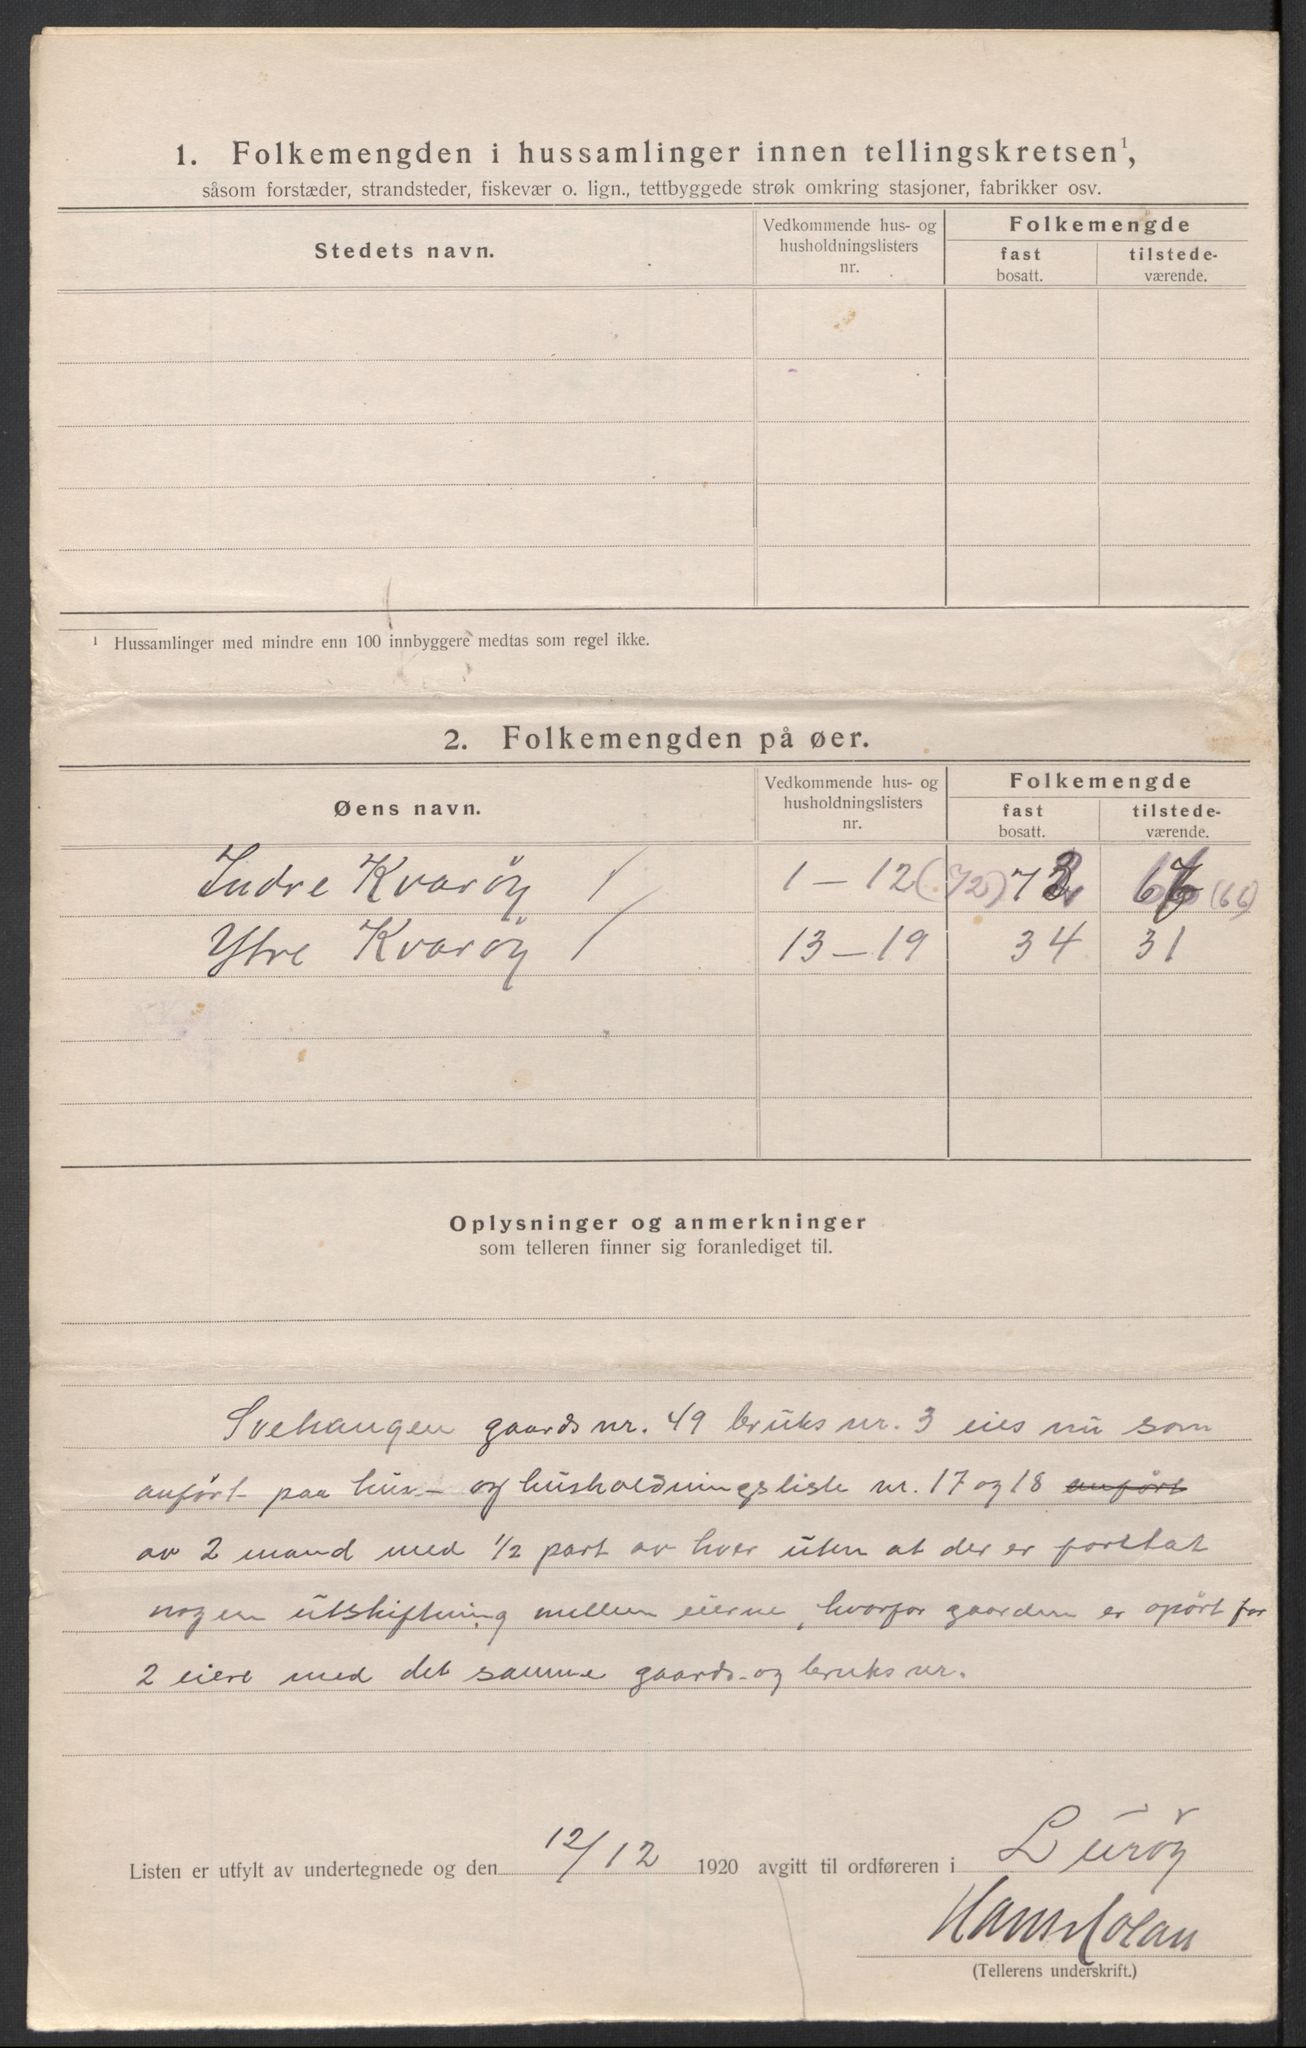 1. Folkemengden i hussamlinger innen tellingskretsen¹,
såsom forstæder, strandsteder, fiskevær o. lign., tettbyggede strøk omkring stasjoner, fabrikker osv.
Stedets navn.
Vedkommende hus- og
husholdningslisters
nr.
Folkemengde
fast
bosatt.
tilstede-
værende.
¹ Hussamlinger med mindre enn 100 innbyggere medtas som regel ikke.
2. Folkemengden på øer.
Øens navn.
Vedkommende hus- og
husholdningslisters
nr.
Folkemengde
fast
bosatt.
tilstede-
værende.
Indre Kvaröy / 1 – 12 (72) 72 66 (66)
Ytre Kvaröy / 13 – 19 34 31
Oplysninger og anmerkninger
som telleren finner sig foranlediget til.
Svehaugen gaards nr. 49 bruks nr. 3 eies nu som
anført paa hus- og husholdningsliste nr. 17 og 18 anført
av 2 mand med 1/2 part av hver uten at der er foretat
nogen utskiftning mellem eierne, hvorfor gaarden er opört for
2 eiere med det samme gaards- og bruks nr.
Listen er utfylt av undertegnede og den 12/12 1920 avgitt til ordføreren i Luröy
(Tellerens underskrift.)